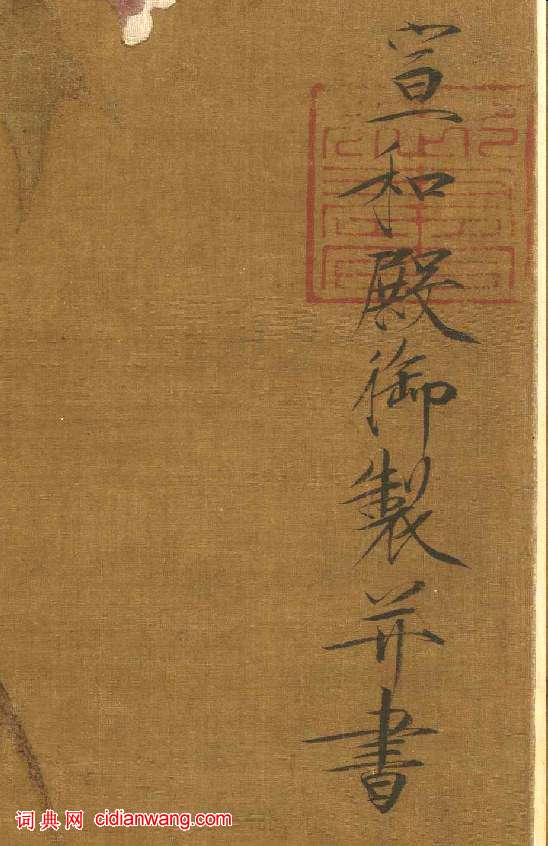 宣和殿御製并書
词典网 cidianwang.com